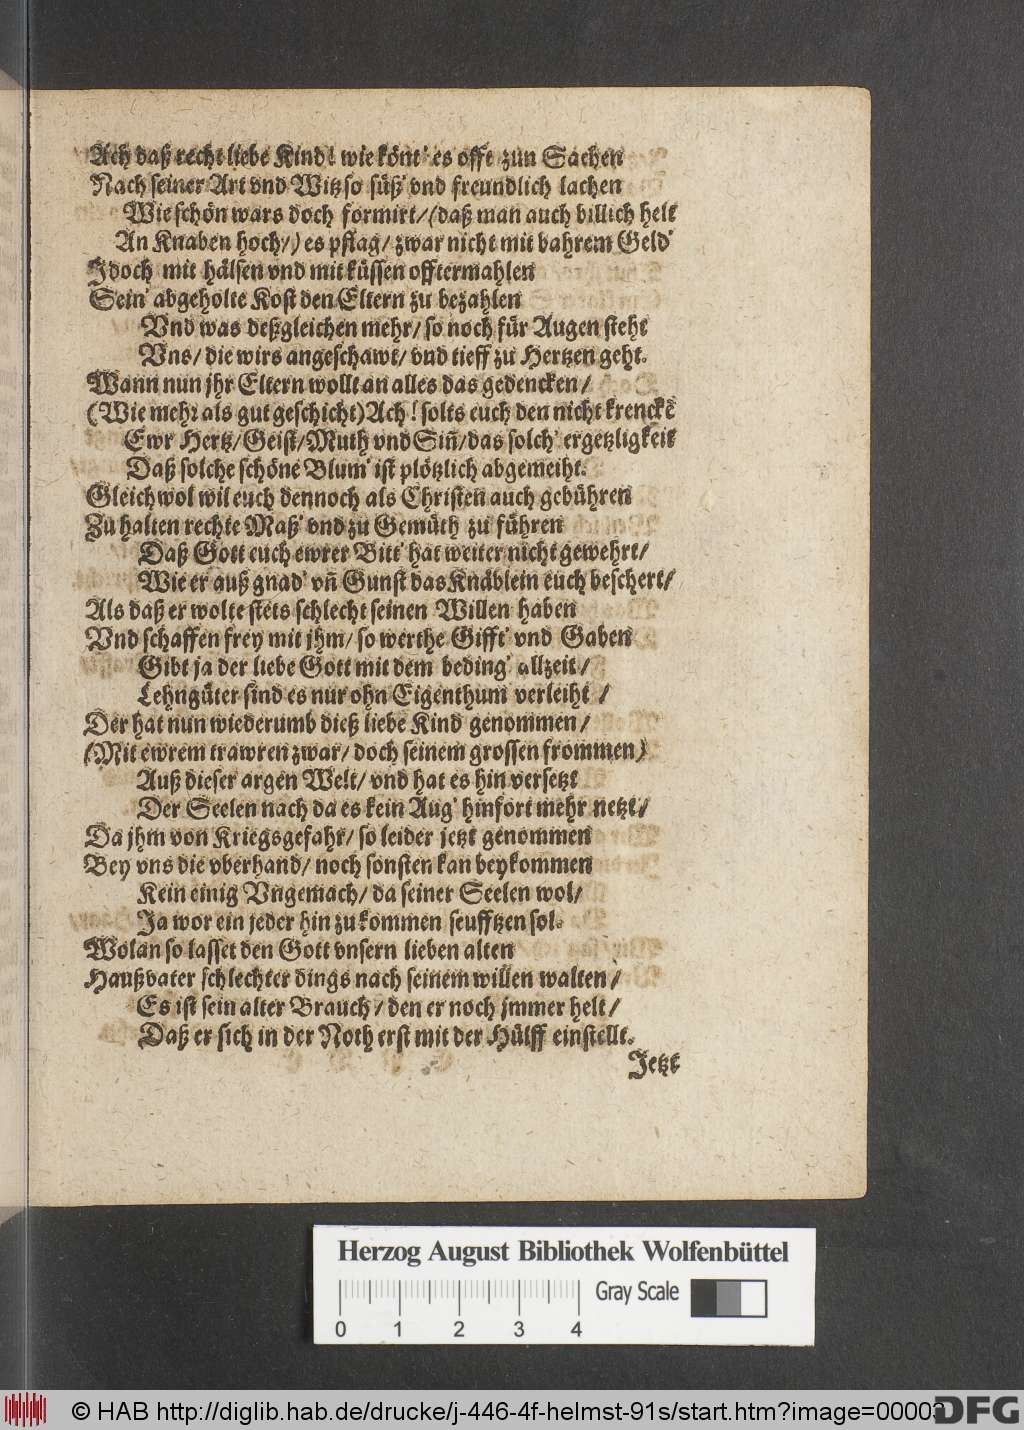 Ach daß recht liebe Kind! wie könt' es offt zun Sachen
Nach seiner Art vnd Witz so süß' vnd freundlich lachen
Wie schön wars doch formirt/ (daß man auch billich helt
An Knaben hoch/) es pflag/ zwar nicht mit bahrem Geld'
Jdoch mit hälsen vnd mit küssen offtermahlen
Sein' abgeholte Kost den Eltern zu bezahlen
Vnd was deßgleichen mehr/ so noch für Augen steht
Vns/ die wirs angeschawt/ vnd tieff zu Hertzen geht.
Wann nun jhr Eltern wollt an alles das gedencken/
(Wie mehr als gut geschicht) Ach! solts euch den nicht krenckẽ
Ewr Hertz/ Geist/ Muth vnd Siñ/ das solch' ergetzligkeit
Daß solche schöne Blum' ist plötzlich abgemeiht.
Gleichwol wil euch dennoch als Christen auch gebühren
Zu halten rechte Maß' vnd zu Gemüth zu führen
Daß Gott euch ewrer Bitt' hat weiter nicht gewehrt/
Wie er auß gnad' vñ Gunst das Knäblein euch beschert/
Als daß er wolte stets schlecht seinen Willen haben
Vnd schaffen frey mit jhm/ so werthe Gifft' vnd Gaben
Gibt ja der liebe Gott mit dem beding' allzeit/
Lehngüter sind es nur ohn Eigenthum verleiht/
Der hat nun wiederumb dieß liebe Kind genommen/
(Mit ewrem trawren zwar/ doch seinem grossen frommen)
Auß dieser argen Welt/ vnd hat es hin versetzt
Der Seelen nach da es kein Aug' hinfort mehr netzt/
Da jhm von Kriegsgefahr/ so leider jetzt genommen
Bey vns die vberhand/ noch sonsten kan beykommen
Kein einig Vngemach/ da seiner Seelen wol/
Ja wor ein jeder hin zu kommen seufftzen sol.
Wolan so lasset den Gott vnsern lieben alten
Haußvater schlechter dings nach seinem willen walten/
Es ist sein alter Brauch/ den er noch jmmer helt/
Daß er sich in der Noth erst mit der Hülff einstellt.
Jetzt
Herzog August Bibliothek Wolfenbüttel
Gray Scale
0 1 2 3 4
© HAB http://diglib.hab.de/drucke/j-446-4f-helmst-91s/start.htm?image=00003
DFG